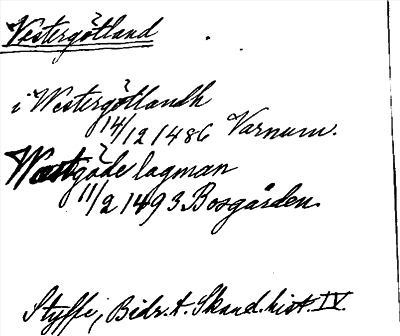 Vestergötland
i Westergötlandh
14/12 1486 Varnum.
Westgöde lagman
11/2 1493 Bosgården.
Styffe, Bidr. t. Skand. hist. IV.